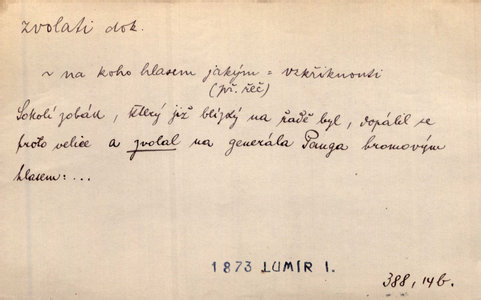 zvolati dok.
~ na koho hlasem jakým = vzkřiknouti
(př. řeč)
Sokolí zobák, který již blízký na řadě byl, dopálil se
proto velice a zvolal na generála Panga hromovým
hlasem: ...
1873 LUMÍR I.
388, 14b.